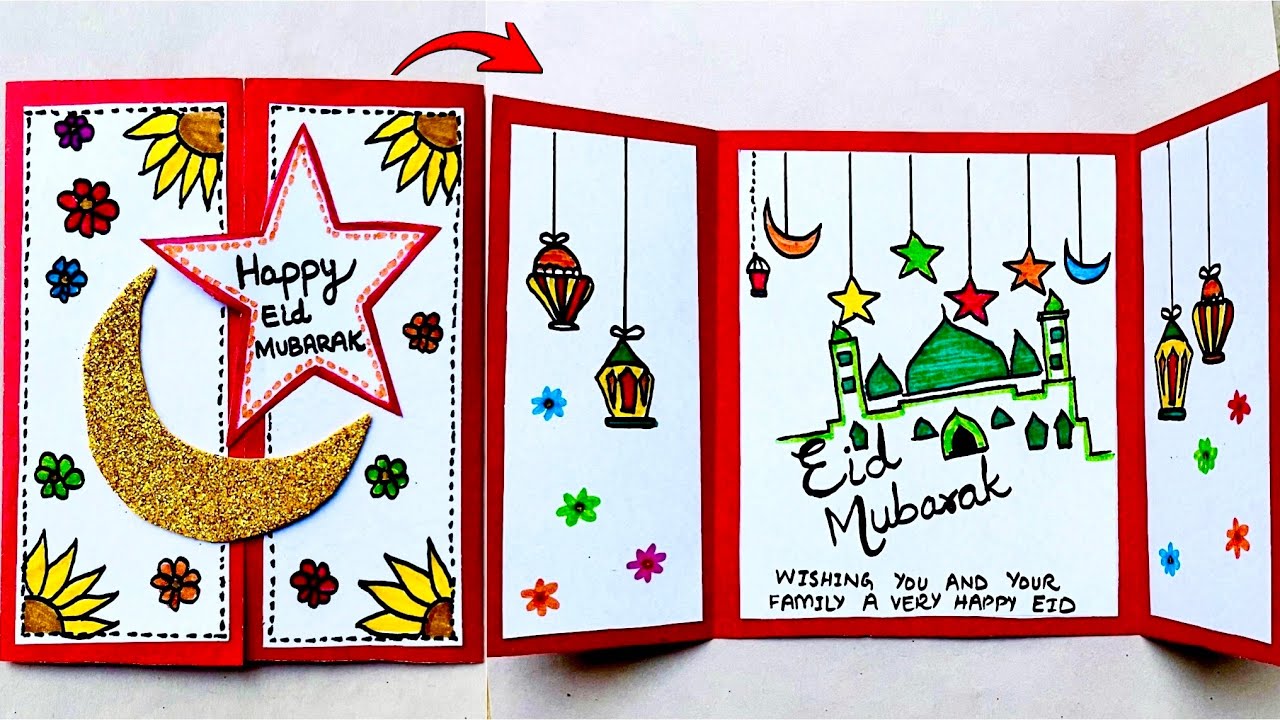 Happy
Eid
MUBARAK
Eid
Mubarak
WISHING YOU AND YOUR
FAMILY A VERY HAPPY EID